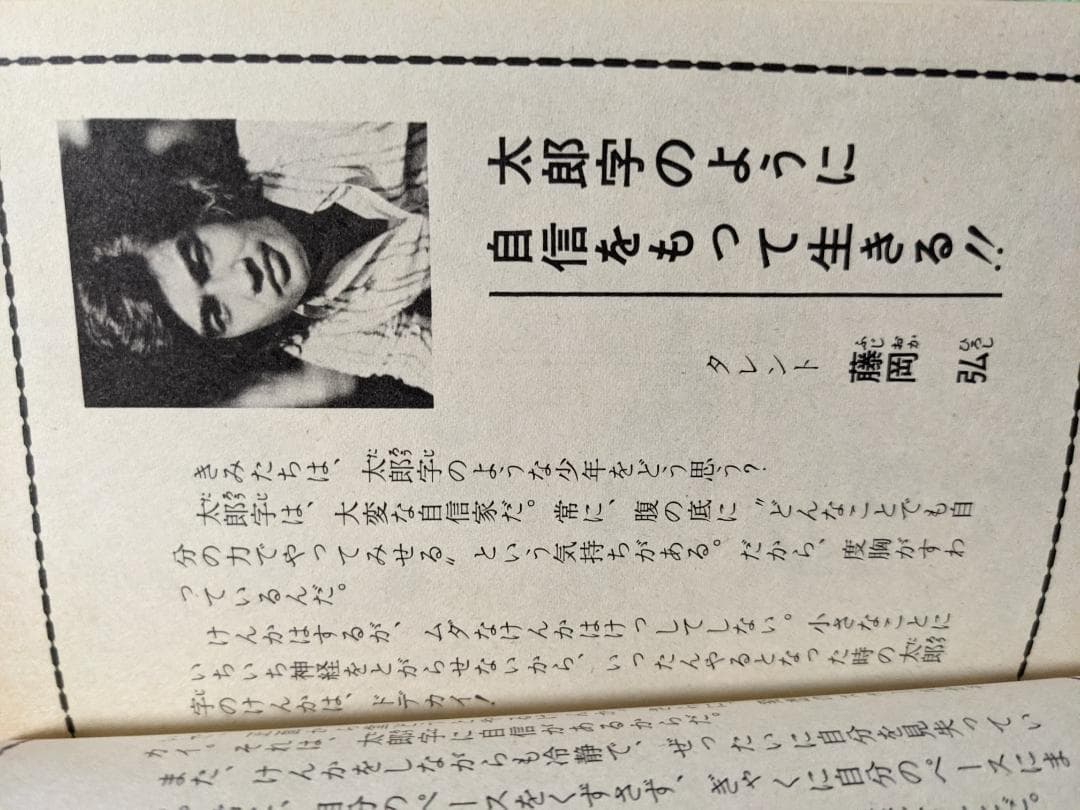 太郎字のように
自信をもって生きる!!
タレント
ふじおか ひろし
藤岡 弘
だろうじ
きみたちは、太郎字のような少年をどう思う?
だろうじ
太郎字は、大変な自信家だ。常に、腹の底に〝どんなことでも自
分の力でやってみせる〟という気持ちがある。だから、度胸がすわ
っているんだ。
けんかはするが、ムダなけんかはけっしてしない。小さなことに
だろう
いちいち神経をとがらせないから、いったんやるとなった時の太郎
じ
字のけんかは、ドデカイ!
カイ。それは、太郎字に自信があるからだ。
また、けんかをしながらも冷静で、ぜったいに自分を見失ってい
自分のペースをくずさず、ぎゃくに自分のペースにま